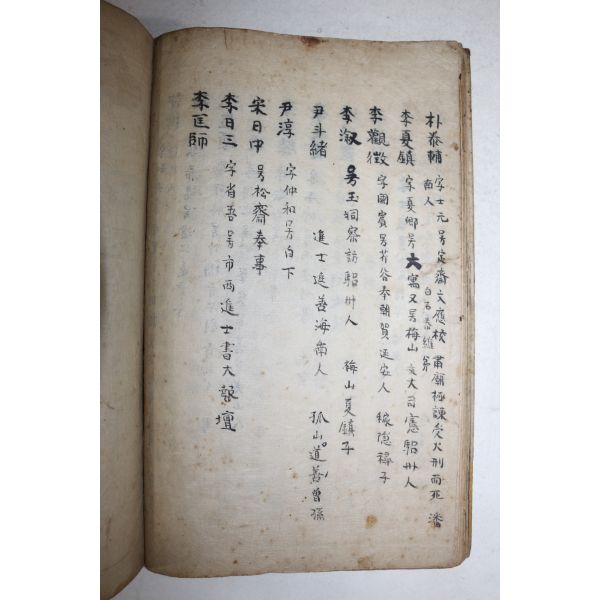 朴泰輔 字士元 号定齋 文應校 肅廟極諫受火刑而死 潘
南人 白石泰維弟
李夏鎭 字夏鄕 号大寓 又号梅山 文大司憲 驪州人
李觀徵 字國賓 号芥谷 奉朝賀 延安人 稼隱䄵子
李溆 号玉洞 察訪 驪州人 梅山夏鎭子
尹斗緖 進士 追善 海南人 孤山道善曾孫
尹淳 字仲和 号白下
宋日中 号松齋 奉事
李日三 字省吾 号市西 進士 書大報壇
李匡師